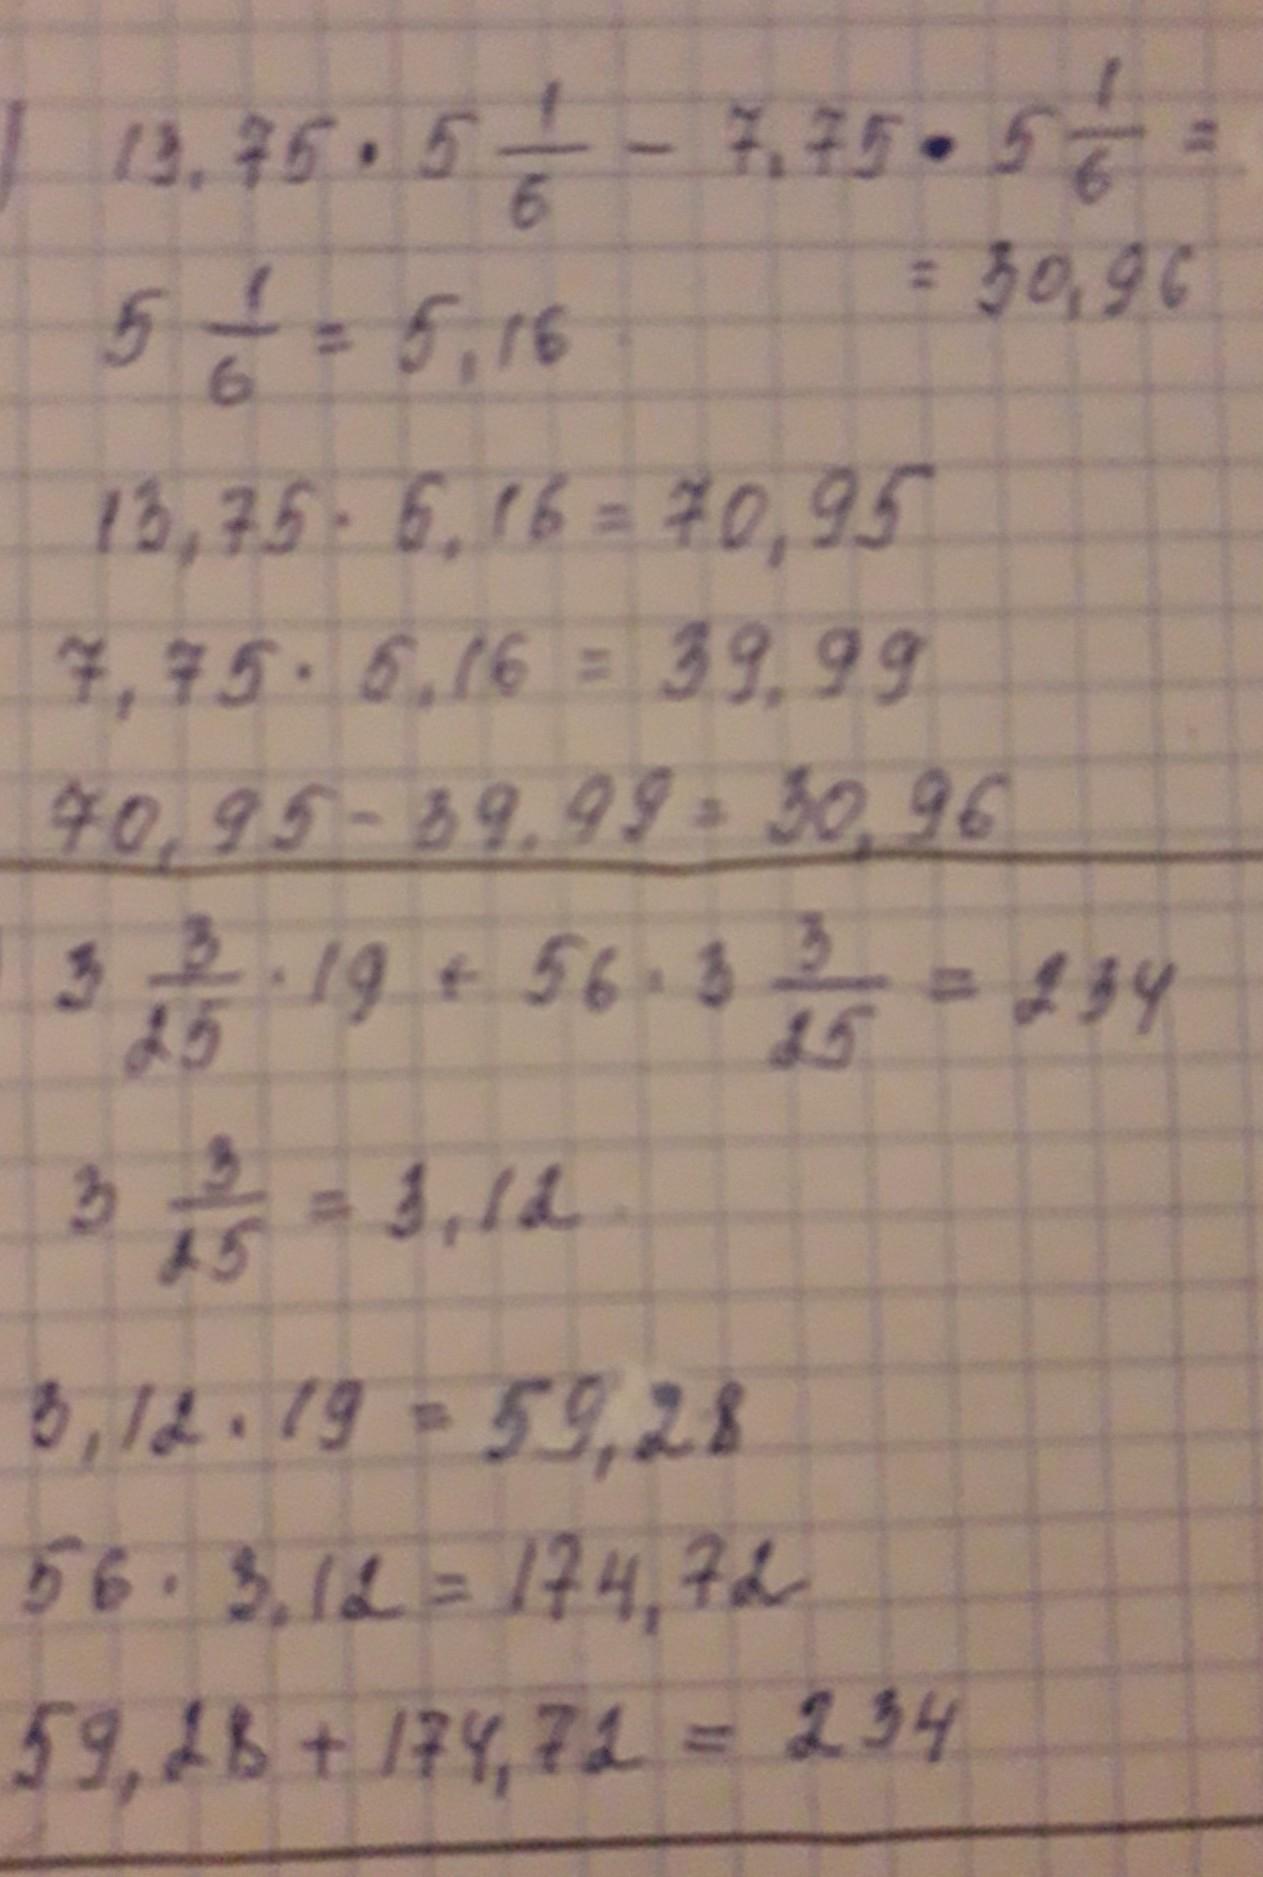 ) 13,75 · 5 1/6 − 7,75 · 5 1/6 =
= 30,96
5 1/6 = 5,16
13,75 · 5,16 = 70,95
7,75 · 5,16 = 39,99
70,95 − 39,99 = 30,96
3 3/25 · 19 + 56 · 3 3/25 = 234
3 3/25 = 3,12
3,12 · 19 = 59,28
56 · 3,12 = 174,72
59,28 + 174,72 = 234